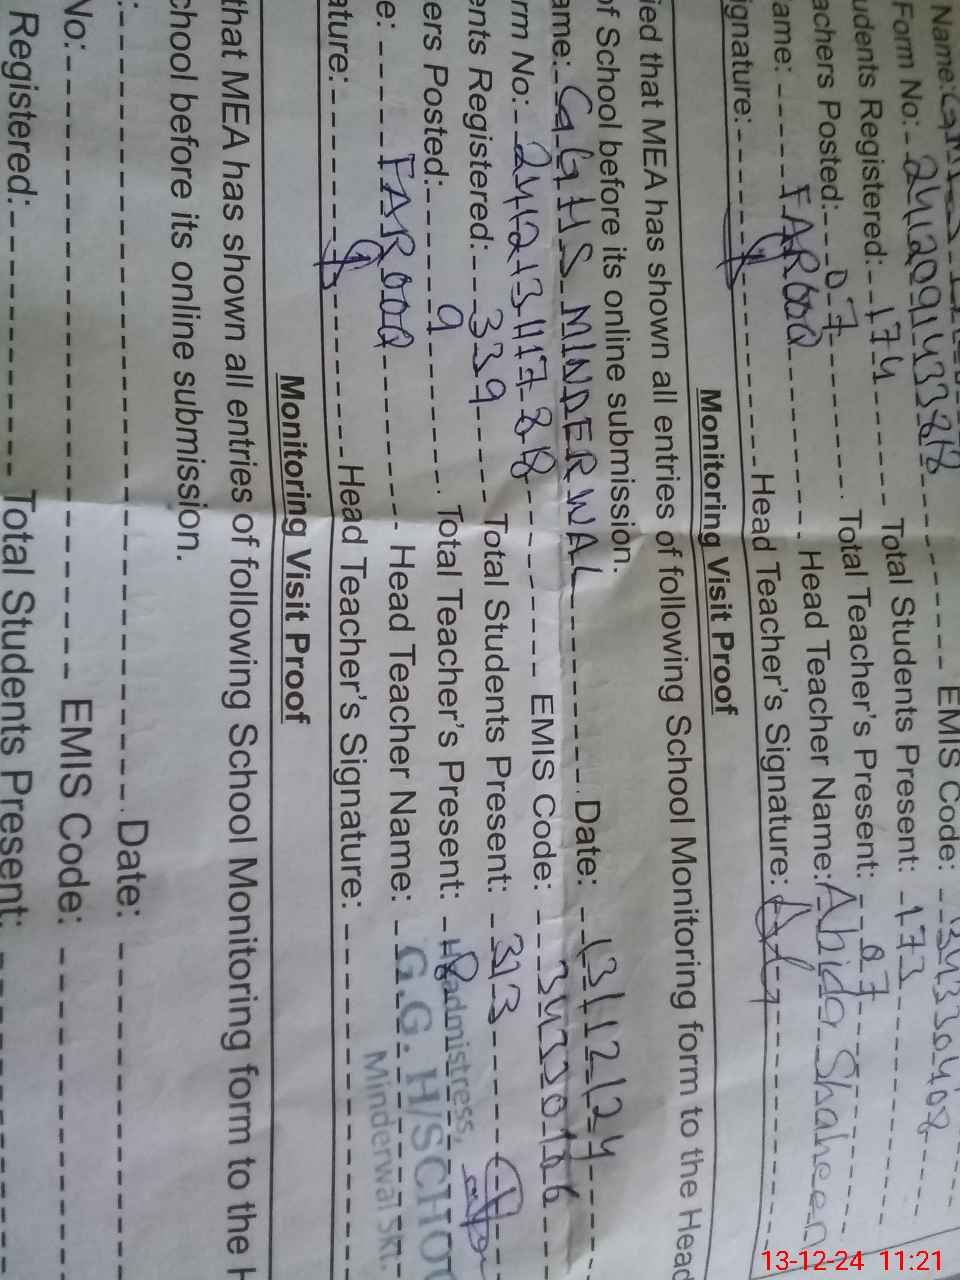 Name:
Form No: 241209143388 EMIS Code:
udents Registered: 174 Total Students Present: 173
achers Posted: 07 Total Teacher's Present: 07
ame: FAROOQ Head Teacher Name: Abida Shaheen
ignature: Head Teacher's Signature:
Monitoring Visit Proof
ied that MEA has shown all entries of following School Monitoring form to the Head
of School before its online submission.
ame: GGHS MINDERWAL Date: 13/12/24
rm No: EMIS Code:
ents Registered: 339 Total Students Present: 313
ers Posted: 9 Total Teacher's Present: 8
e: FAROOQ Head Teacher Name:
Headmistress,
G.G. H/SCHOO
Minderwal SKT.
ature: Head Teacher's Signature:
Monitoring Visit Proof
that MEA has shown all entries of following School Monitoring form to the H
chool before its online submission.
: Date:
No: EMIS Code:
Registered: Total Students Present:
13-12-24 11:21